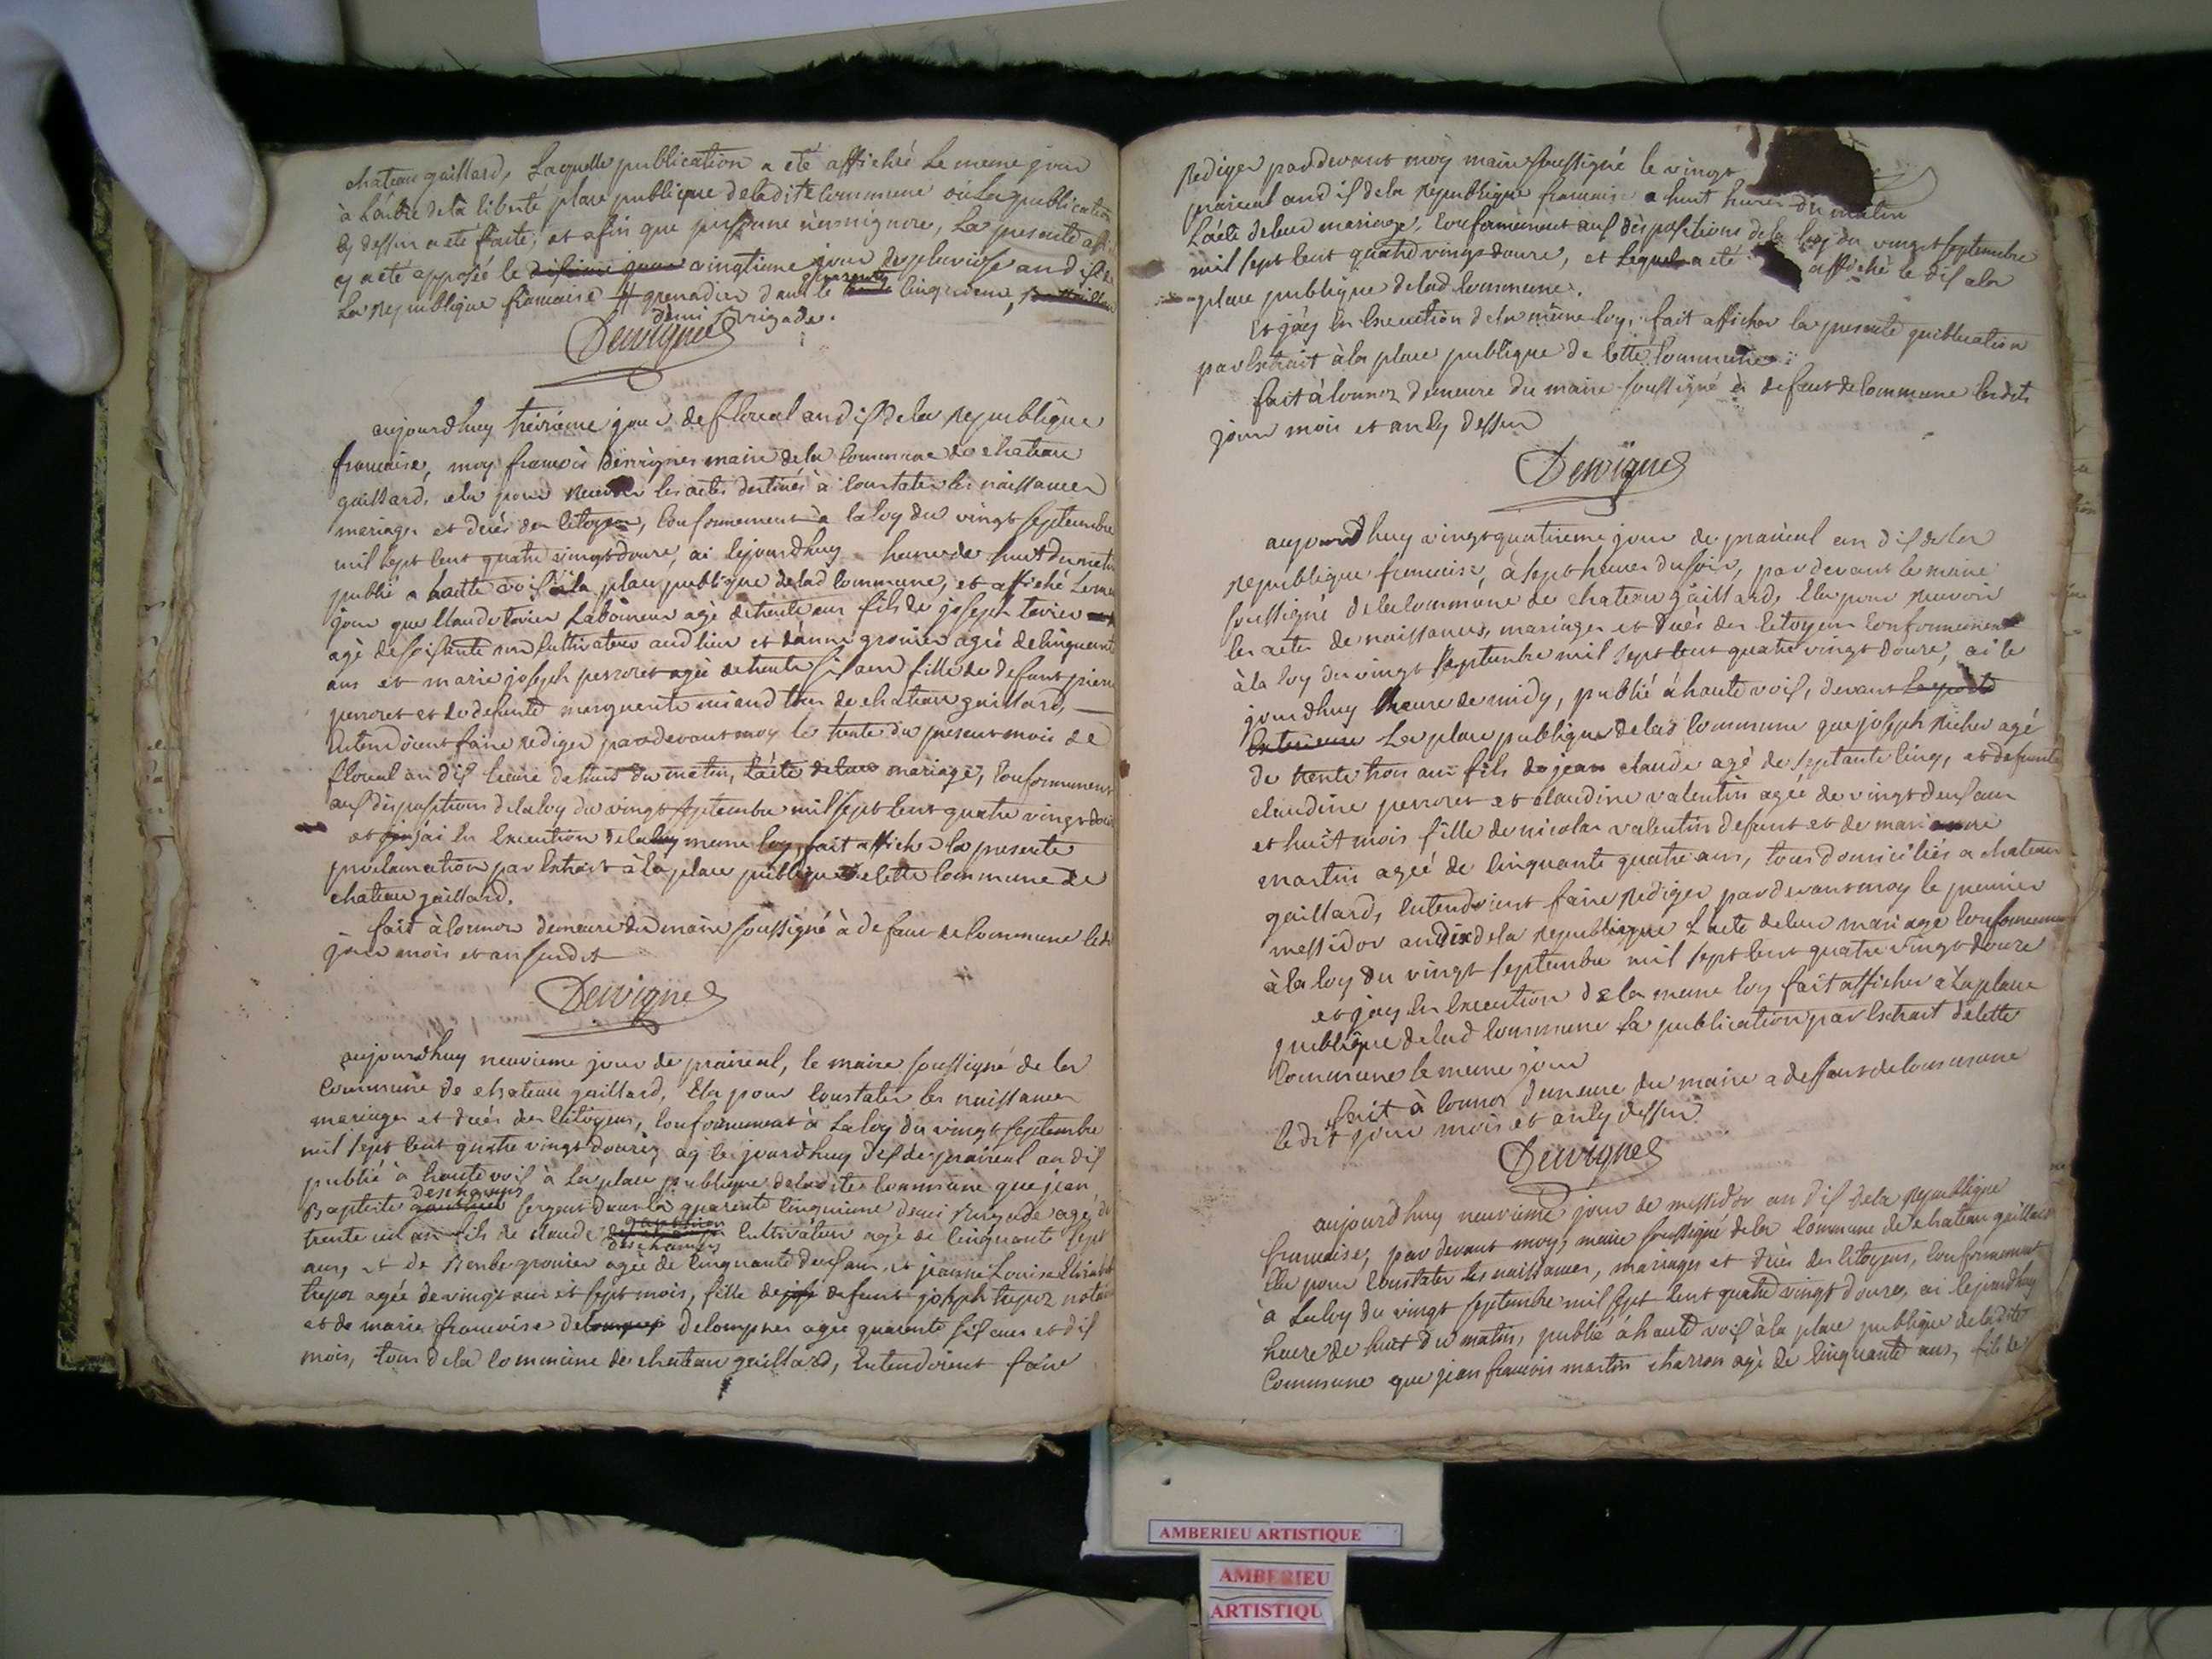 chateau gaillard, Laquelle publication a eté affiché le meme jour
à Larbre dela liberté place publique deladite Commune ou La publication
cy dessus a eté faite, et afin que personne n'en ignore, La presente
cy a eté apposée le vingtieme jour de pluviose an dix de
La Republique francaise # grenadier dans le quarante cinquieme,
demi Brigade.
Dervigne
aujourdhuy treizieme jour de floreal an dix dela Republique
francaise, moy francois Dervignes maire dela Commune de chateau
gaillard, elu pour recevoir les actes destinés à Constater les naissances
mariages et decés des Citoyens, Conformement à la loy du vingt septembre
mil sept cent quatre vingt douze, ai cejourdhuy heure de huit du matin
publié a hautte voix à la place publique delad commune, et affiché Le meme
jour que Claude tavier Laboureur agé de trente ans fils de joseph tavier
agé de soixante ans Cultivateur aud lieu et danne grosier agée de cinquante
ans et marie joseph perroset agée de trente six ans fille de defunt pierre
perroset et de defunte marguerite tous de chateau gaillard,
Entendoient faire rediger pardevant moy le trente du present mois de
floreal an dix heure de huit du matin, Lacte de leur mariage, Conformement
aux dispositions dela loy du vingt septembre mil sept cent quatre vingt douze
et j'ai En Execution dela meme loy, fait affiché la presente
proclamation par Extrait à la place publique de cette Commune de
chateau gaillard.
fait à Cormoz demeure du maire soussigné à defaut de Commune ledit
jour mois et an susdit
Dervigne
aujourdhuy neuvieme jour de prairial, le maire soussigné de la
Commune de chateau gaillard, Elu pour Constater les naissances
mariages et decés des Citoyens, Conformement à La loy du vingt septembre
mil sept cent quatre vingt douze, ay ce jourdhuy dix de prairial an dix
publié à haute voix à La place publique deladite Commune que jean
deschamps
Baptiste sergent dans la quarante cinquieme demi Brigade agé de
trente un an fils de Claude Cultivateur agé de Cinquante sept
deschamps
ans, et de grosier agée de Cinquante deux ans, et jeanne Louise
trepoz agée de vingt ans et sept mois, fille de defunt joseph trepoz
et de marie francoise delompnes agée quarante six ans et dix
mois, tous dela Commune de chateau gaillard, Entendoient faire
Rediger pardevant moy maire soussigné le vingt
prairial an dix dela Republique francaise a huit heures du matin
Lacte de leur mariage, Conformement aux dispositions dela loy du vingt septembre
mil sept cent quatre vingt douze, et Lequel a eté affiché le dix a la
place publique delad Commune.
Et j'ay En Execution dela meme loy, fait afficher la presente publication
par Extrait à la place publique de cette Commune
fait à Cormoz demeure du maire soussigné à defaut de Commune lesdits
jour mois et an cy dessus
Dervigne
aujourdhuy vingt quatrieme jour de prairial an dix dela
Republique francaise, à sept heures du soir, par devant le maire
soussigné dela Commune de chateau gaillard, Elu pour recevoir
les actes de naissances, mariages et decés des Citoyens Conformement
à la loy du vingt septembre mil sept cent quatre vingt douze, ai ce
jourdhuy heure de midy, publié à haute voix, devant la porte
Exterieure La place publique delad Commune que joseph Richer agé
de trente trois ans fils de jean claude agé de septante cinq, et defunte
claudine perroset et claudine valentin agée de vingt deux ans
et huit mois fille de nicolas valentin defunt et de marianne
martin agée de Cinquante quatre ans, tous domiciliés a chateau
gaillard, Entendoient faire Rediger pardevant moy le premier
messidor an dix dela Republique Lacte de leur mariage Conformement
à la loy du vingt septembre mil sept cent quatre vingt douze
et j'ay En Execution de la meme loy fait afficher à La place
publique delad Commune La publication par Extrait de cette
Commune le meme jour
fait à Cormoz demeure du maire a deffaut de Commune
ledit jour mois et an cy dessus
Dervigne
aujourdhuy neuvieme jour de messidor an dix dela Republique
francaise, par devant moy, maire soussigné dela Commune de chateau gaillard
Elu pour Constater les naissances, mariages et decés des Citoyens, Conformement
à La loy du vingt septembre mil sept cent quatre vingt douze, ai cejourdhuy
heure de huit du matin, publié à haute voix à la place publique deladite
Commune que jean francois martin charron agé de Cinquante ans, fils de
AMBERIEU ARTISTIQUE
AMBERIEU
ARTISTIQU